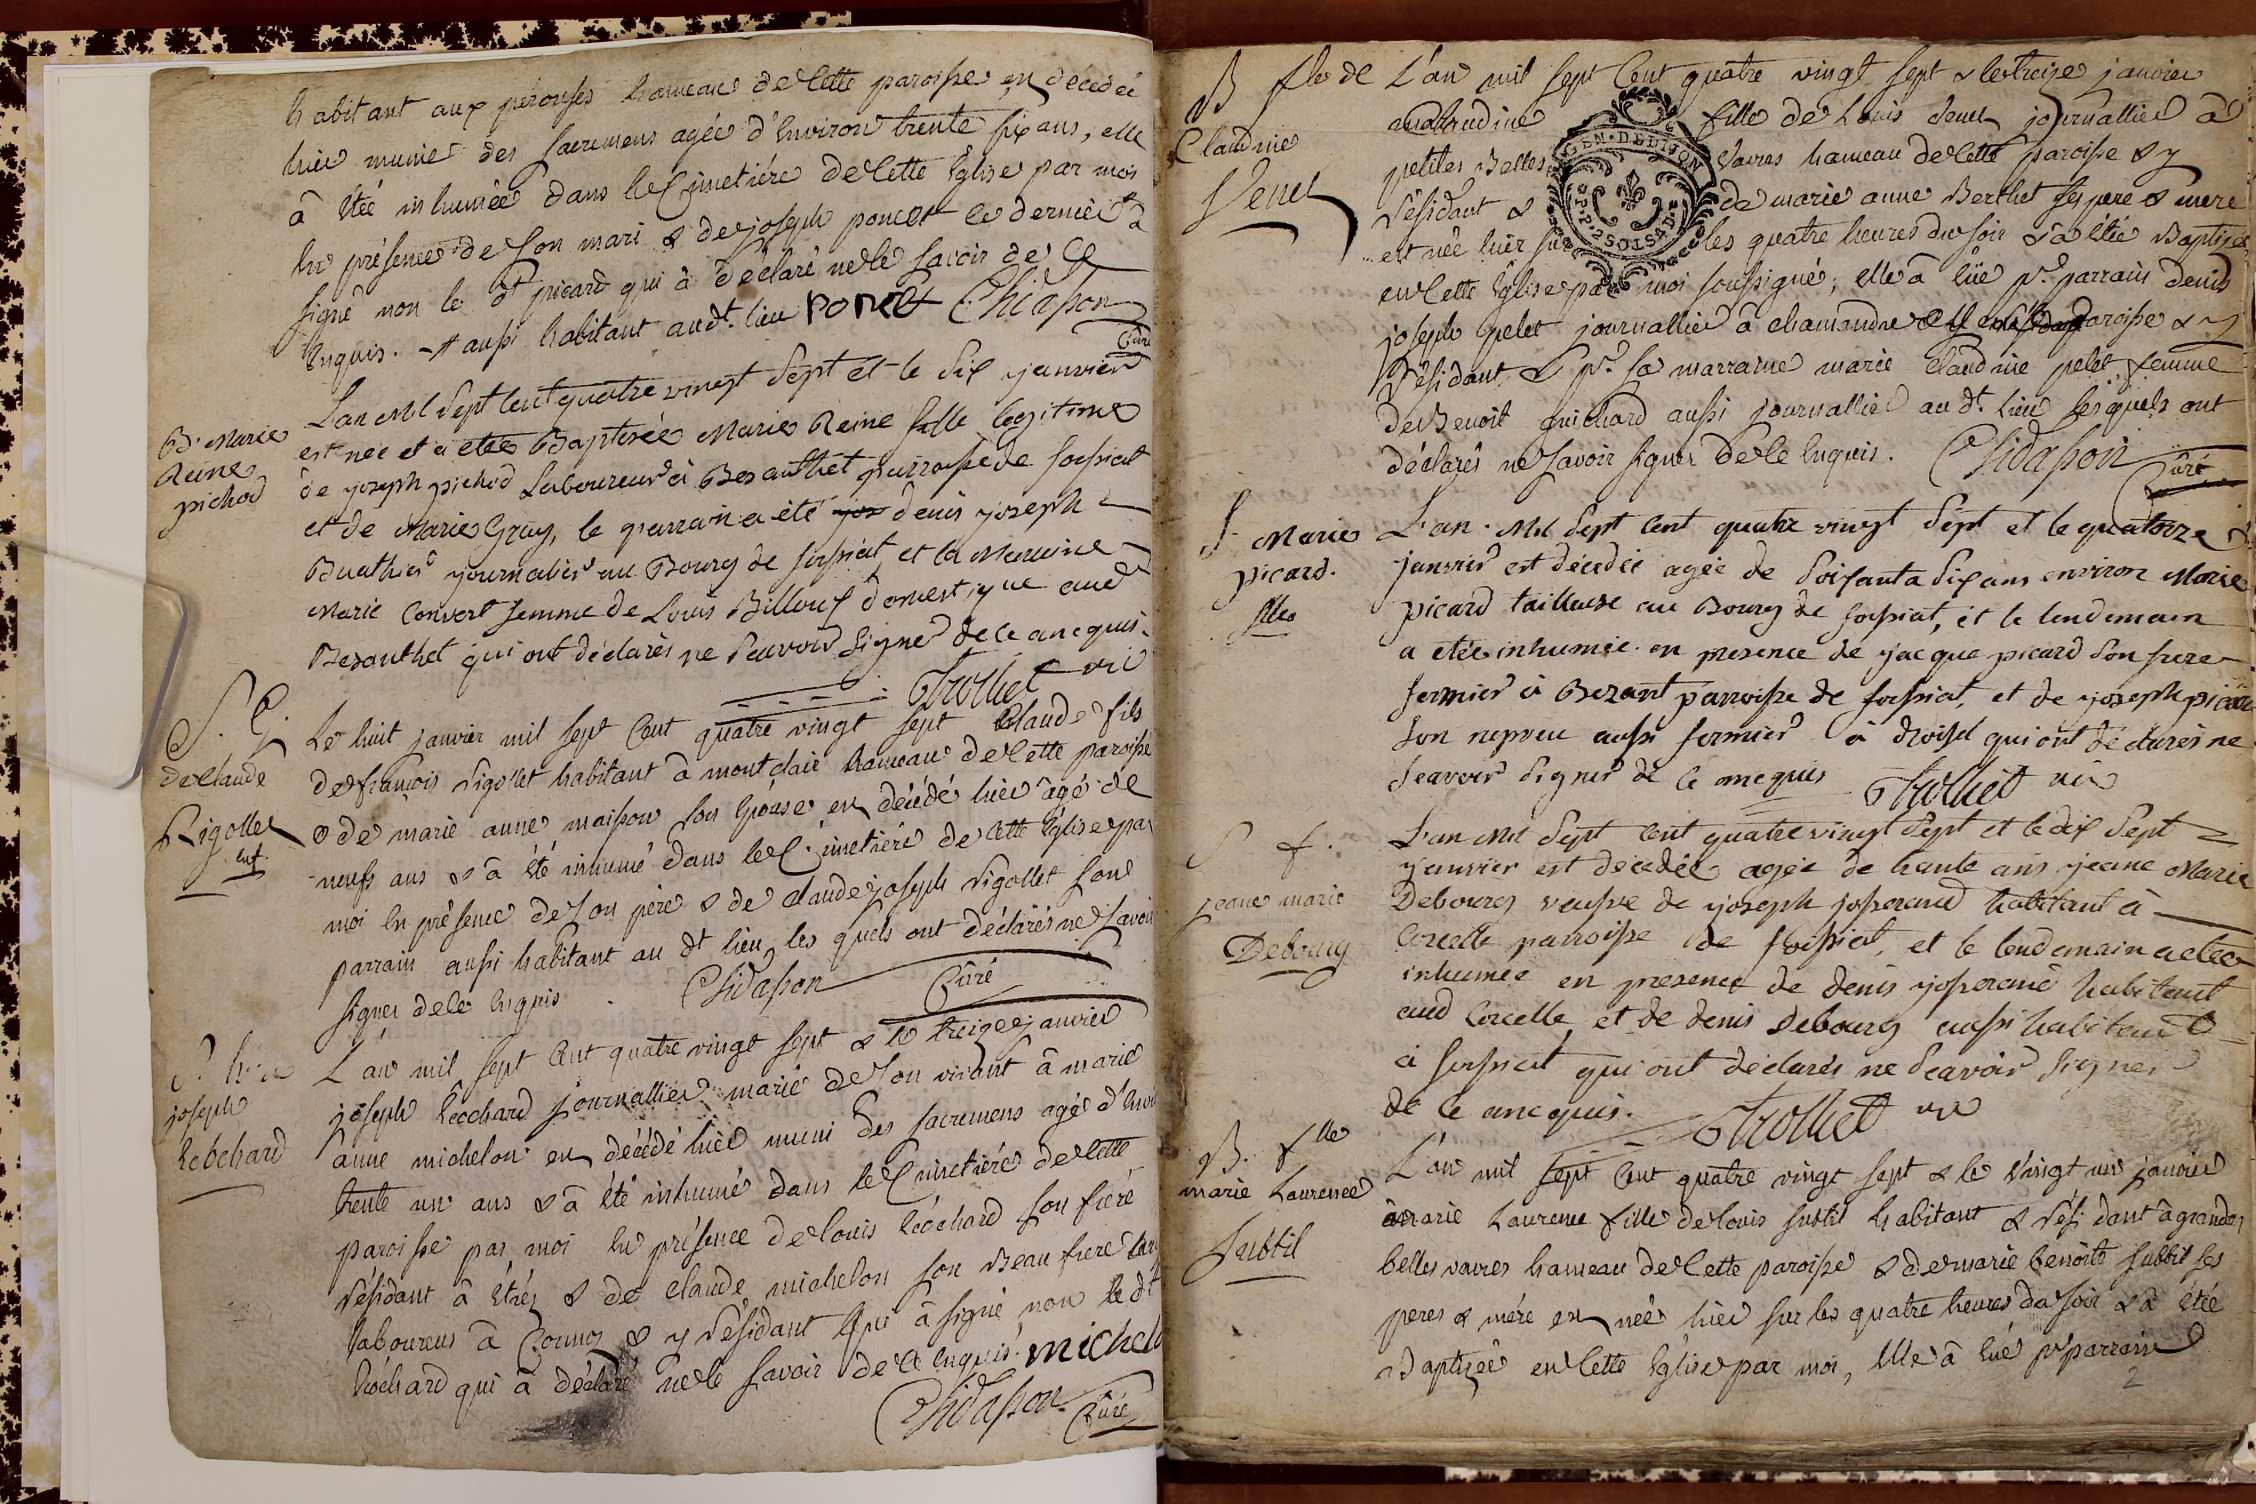 habitant aux perouses hameau de Cette paroisse est décédée
hier munie des sacremens agée d'Environ trente six ans, elle
à Été inhumée dans le Cimetiére de Cette Eglise par moi
En présence de son mari & de joseph poncet le dernier à
signé non le dt picard qui à déclaré ne le savoir de Ce
Enquis. aussi habitant au dt. lieu poncet Chidasson
Curé
B. Marie
Reine
pichod
L'an Mil Sept Cent quatre vingt Sept et le Six janvier
est née et a eteé Baptisée Marie Reine fille legitime
de joseph pichod Laboureur à Besanthet parroisse de forssiat
et de Marie Gray, le parrain a été denis joseph
Buathier journalier au Bourg de forssiat, et la Maraine
Marie Convert femme de Louis Billoux domestique aud
Besanthet qui ont déclarés ne Scavoir Signer de ce ancquis.
Trolliet vic
S. G.
de Claude
Rigollet
enf.
Le huit janvier mil sept Cent quatre vingt sept Claude fils
de françois Rigollet habitant à montclair hameau de Cette paroisse
& de marie anne maisson son Epouse est décédé hier âgé de
neufs ans & à été inhumé dans le Cimetiére de Cette Eglise par
moi En présence de son père & de claude joseph Rigollet son
parrain aussi habitant au dt lieu les quels ont déclarés ne savoir
signer de Ce Enquis. Chidasson Curé
S. h.
joseph
Ecochard
L'an mil sept Cent quatre vingt sept & le treize janvier
joseph Ecochard journallier marié de son vivant à marie
anne michelon est décédé hier muni des sacremens agé d'Environ
trente un ans & à été inhumé dans le Cimetiére de Cette
paroisse par moi En présence de Louis Ecochard son frére
résidant à Etréz & de claude michelon son Beau frere
Laboureur à Cormoz & y résidant qui à signé non le dt
Ecochard qui à déclaré ne le savoir de Ce Enquis. michelon
Chidasson Curé
B flle de
Claudine
Venet
L'an mil sept Cent quatre vingt sept & le treize janvier
Claudine fille de Louis Venet journallier à
petites Belles Vavres hameau de Cette paroisse & y
Résidant & de marie anne Berthet ses pere & mere
est née hier sur les quatre heures du soir & à étée Baptisée
en Cette Eglise par moi soussigné; elle à Eüe pr. parrain denis
joseph pelet journallier à chamandre paroisse & y
Résidant & pr. sa marraine marie Claudine pelet femme
de Benoit guichard aussi journallier au dt. Lieu lesquels ont
déclarés ne savoir signer de Ce Enquis. Chidasson
Curé
GEN. DE DIJON
S. Marie
picard.
fille
L'an Mil Sept Cent quatre vingt Sept et le quatorze
janvier est décedée agée de Soixanta Six ans environ Marie
picard tailleuse au Bourg de forssiat, et le lendemain
a etée inhumée en presence de jacque picard Son frere
fermier à Bezant parroisse de forssiat, et de joseph picard
Son nepveu aussi fermier à qui ont déclarés ne
Scavoir Signer de ce ancquis Trolliet vic
S f.
jeanne marie
Debourg
L'an Mil Sept Cent quatre vingt Sept et le dix Sept
janvier est décedée agée de trante ans jeanne Marie
Debourg veufve de joseph josserand habitant à
Corcelle parroisse de forssiat, et le lendemain a etée
inhumée en presence de denis josserand habitant
aud Corcelle, et de denis Debourg aussi habitant
à forssiat qui ont déclarés ne Scavoir Signer
de ce ancquis. Trolliet vic
B. flle
marie Laurence
Subtil
L'an mil sept Cent quatre vingt sept & le Vingt un janvier
marie Laurence fille de Louis Subtil habitant & résidant à grandes
belles vavres hameau de Cette paroisse & de marie benoite Subtil ses
peres & mére est née hier sur les quatre heures du soir & à étée
Baptizée en Cette Eglise par moi, Elle à Eüe pr parrain
2